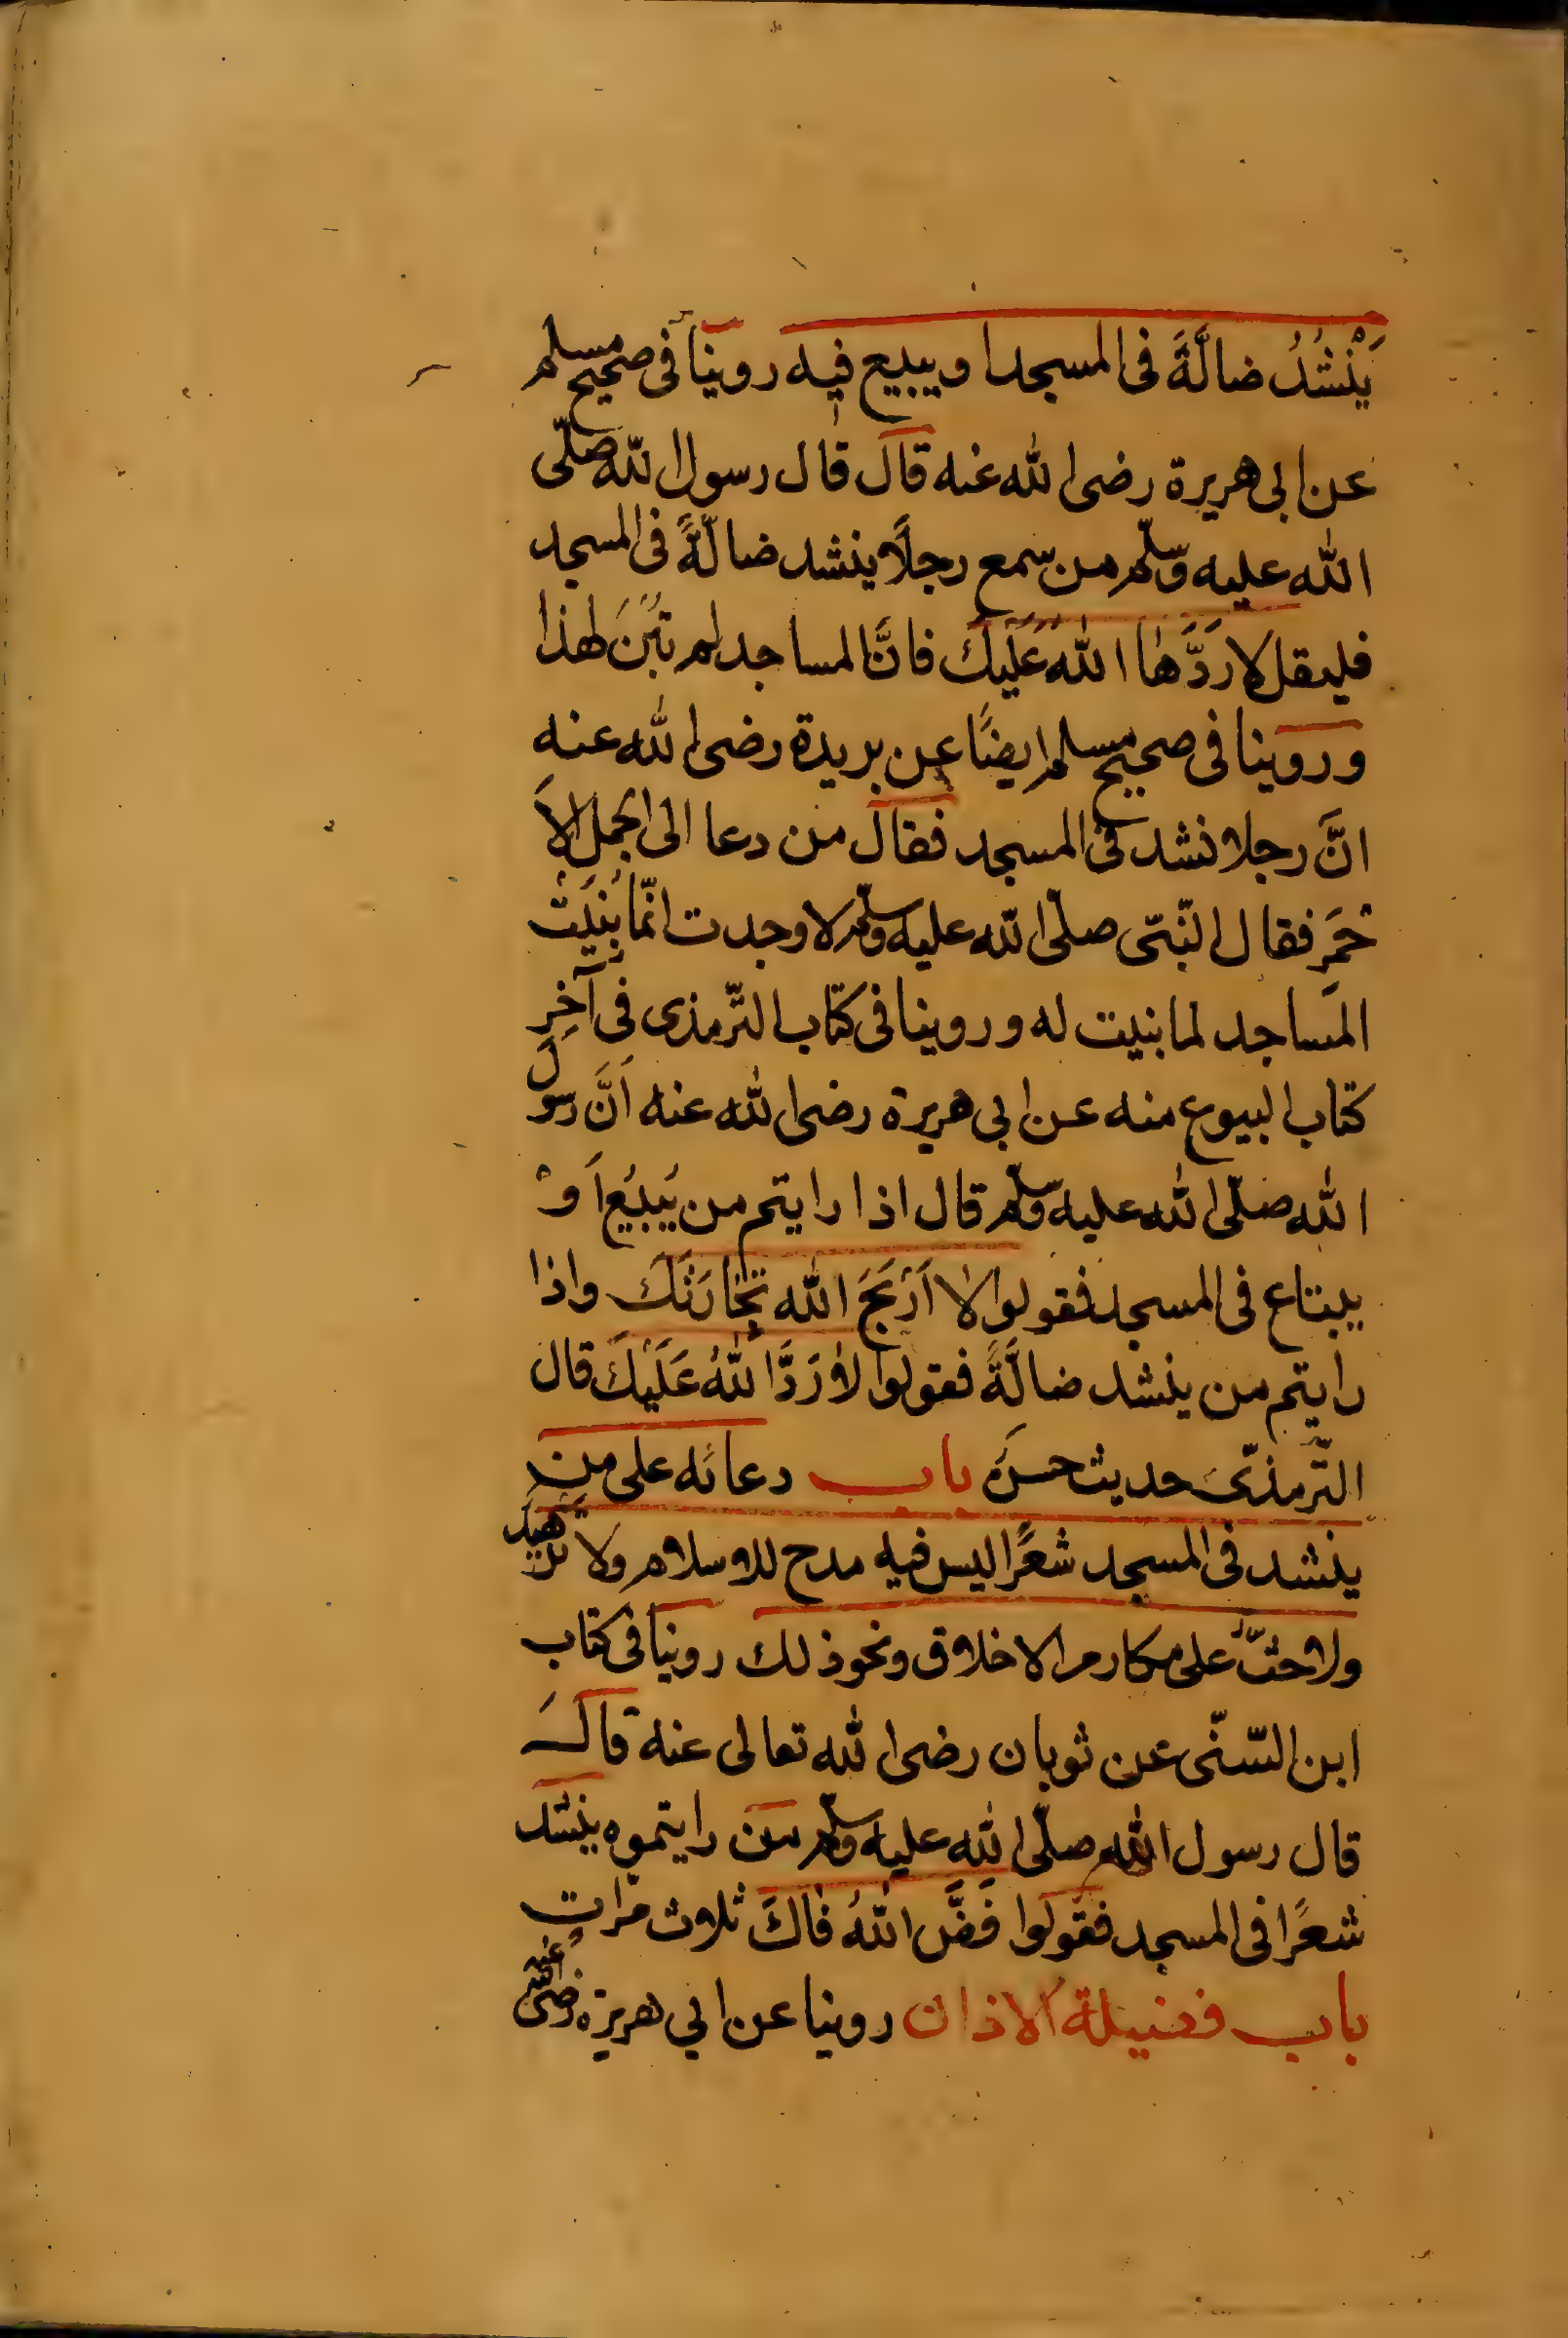 يَنْشُدُ ضالَّةً فى المسجد او يبيع فيه روينا فى صحيح مسلم
عن ابى هريرة رضى الله عنه قال قال رسول الله صلّى
الله عليه وسلّم من سمع رجلًا ينشد ضالّةً فى المسجد
فليقل لا رَدَّهٰا اللهُ عَلَيْكَ فانَّ المساجد لم تُبْنَ لهذا
وروينا فى صحيح مسلم ايضًا عن بريدة رضى الله عنه
انَّ رجلا نشد فى المسجد فقال من دعا الى الجمل الاَ
حْمَرِ فقال النّبىّ صلّى الله عليه وسلّم لا وجدت انّما بُنِيَتْ
المَساجد لما بنيت له وروينا فى كتاب التّرمذى فى آخِرِ
كتاب البيوع منه عن ابى هريرة رضى الله عنه اَنَّ رسولَ
الله صلّى الله عليه وسلّم قال اذا رايتم من يَبيْعُ اَوْ
يبتاع فى المسجد فقولوا لا اَرْبَحَ الله تِجٰارَتَكَ واذا
رايتم من ينشد ضالَّةً فقولوا لا رَدَّ اللهُ عَلَيْكَ قال
التّرمذىّ حديث حسن باب دعائه على من
ينشد فى المسجد شعرًا ليس فيه مدح للاسلام ولا تزهيد
ولا حثّ على مكارم الاخلاق ونحو ذلك روينا فى كتاب
ابن السّنّى عن ثوبان رضى الله تعالى عنه قال
قال رسول الله صلّى الله عليه وسلّم من رايتموه ينشد
شعرًا فى المسجد فقولوا فَضَّ اللهُ فٰاكَ ثلاث مرات
باب فضيلة الاذان روينا عن ابي هريرة رضى الله عنه